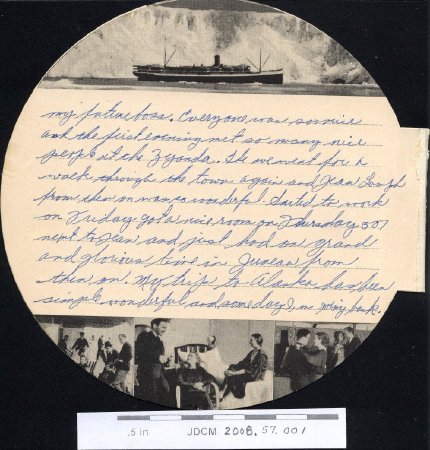 my future boss. Everyone was so nice
and the first evening met so many nice
people at the . She we went for a
walk through the town again and Jean
from then on was so wonderful. Started to work
on Friday got a nice room on Thursday
next to Jean and just had on grand
and glorious time in Juneau from
then on. My trip to Alaska has been
simply wonderful and someday I'm going back.
.5 in JDCM 2008.57.001